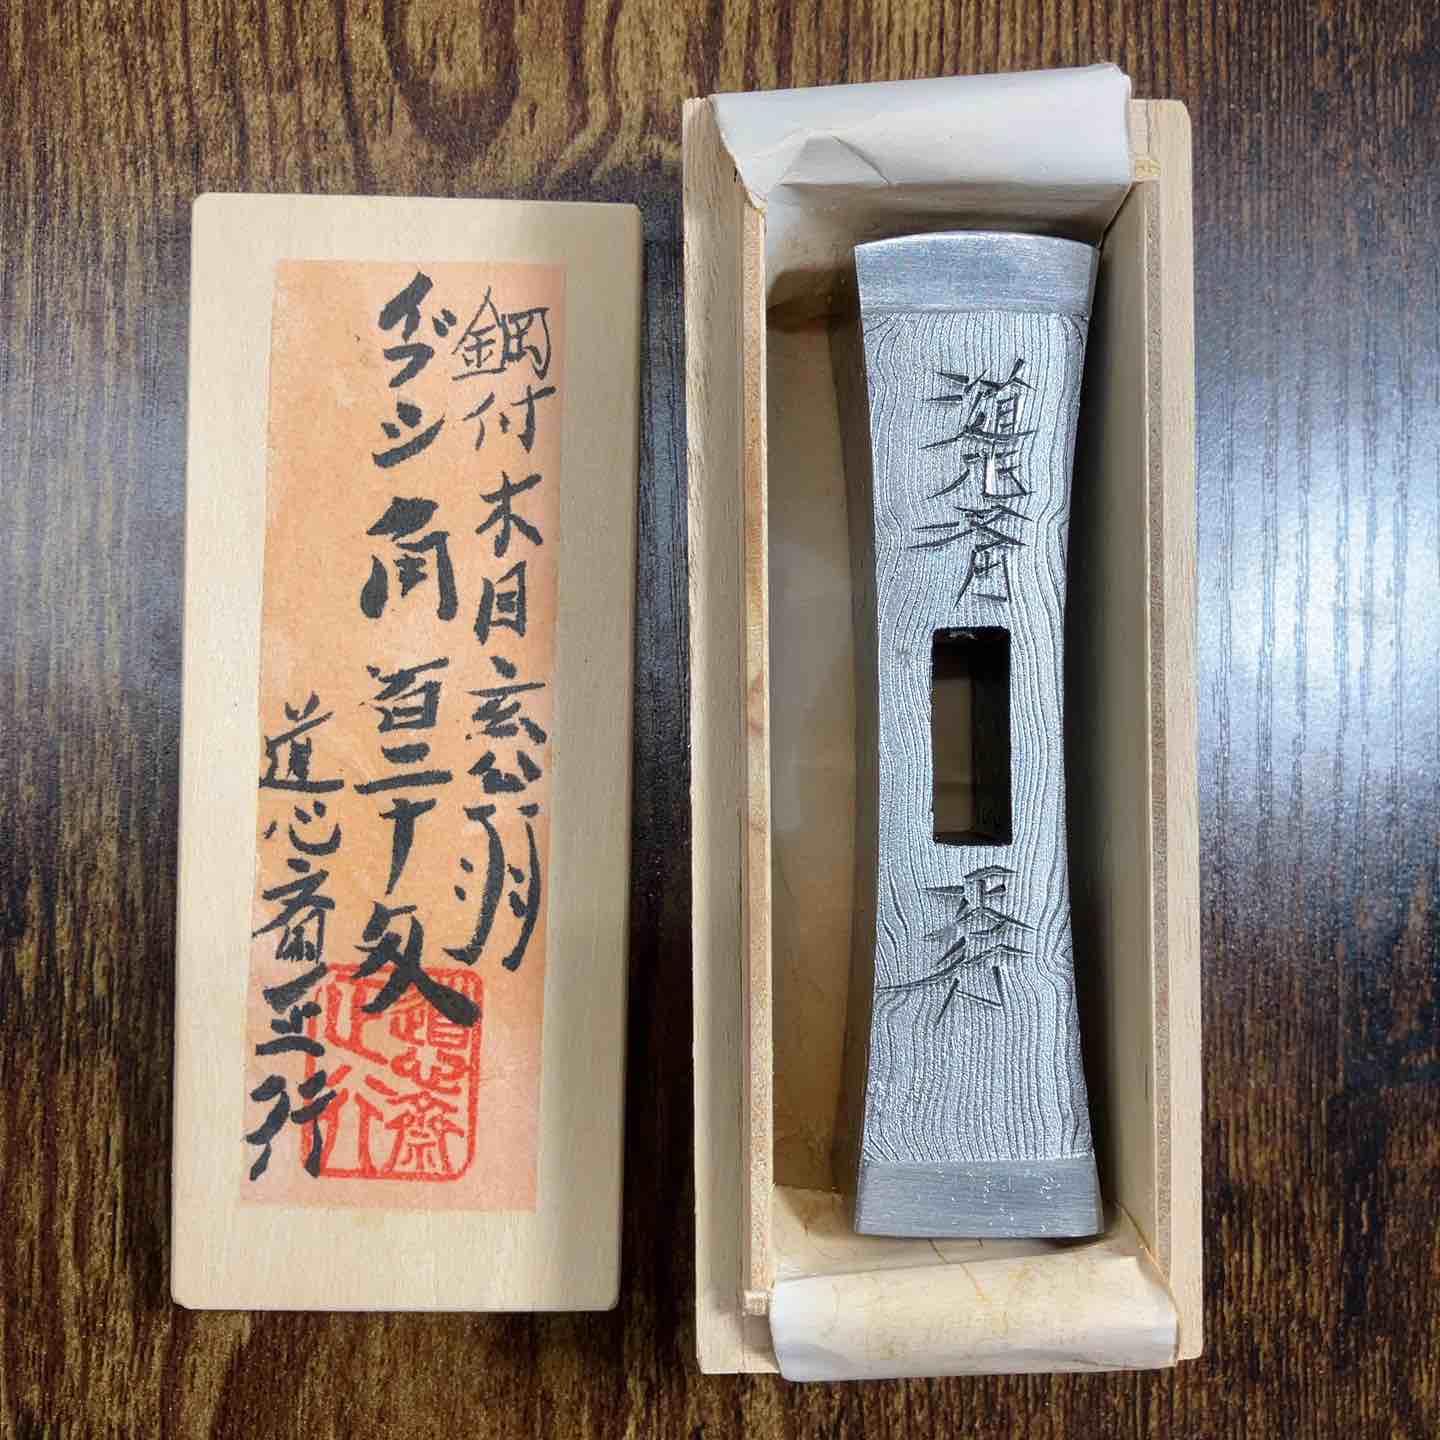 鋼付木目玄翁
イブシ角百二十匁
道心斎正行
道心齋
正行
道心斎
正行